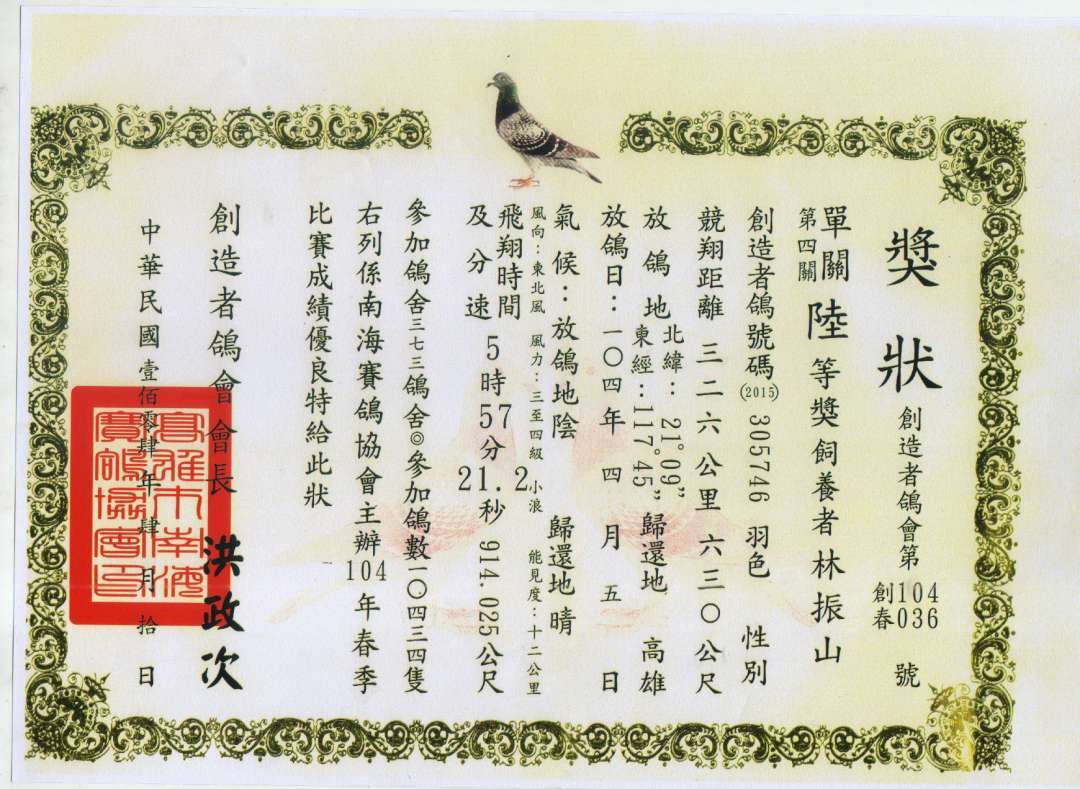 獎狀 創造者鴿會第 創春 104 036 號
單關 第四關 陸 等獎飼養者林振山
創造者鴿號碼(2015) 305746 羽色 性別
競翔距離 三二六公里六三〇公尺
放鴿地 北緯:21°09" 東經:117°45" 歸還地 高雄
放鴿日:一〇四年 四 月 五 日
氣候:放鴿地陰 歸還地晴
風向:東北風 風力:三至四級 小浪 能見度:十二公里
飛翔時間及分速 5時57分21.2秒 914.025公尺
參加鴿舍三七三鴿舍◎參加鴿數一〇四三四隻
右列係南海賽鴿協會主辦104年春季
比賽成績優良特給此狀
創造者鴿會會長 洪政次
中華民國壹佰零肆年肆月拾日
高雄市南海賽鴿協會印